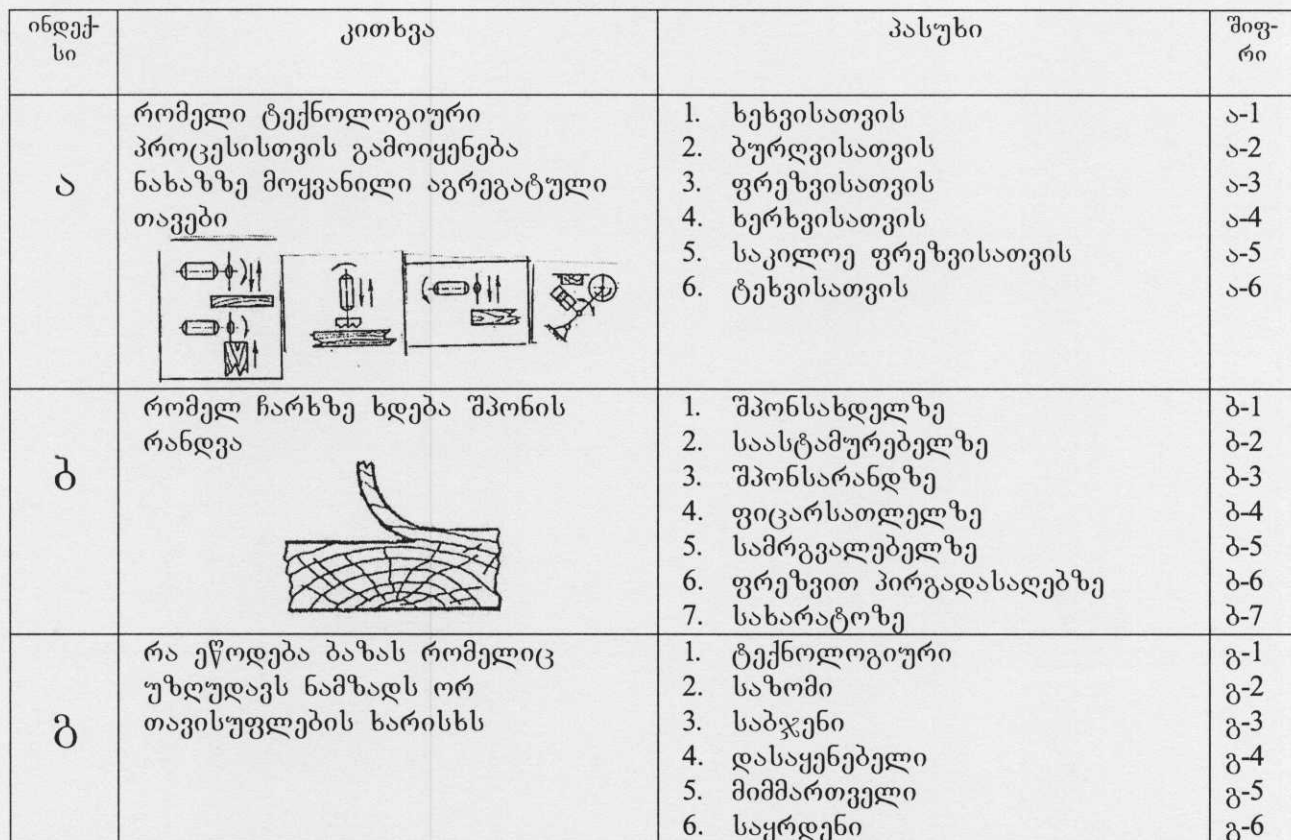 ინდექ-
სი
კითხვა
პასუხი
შიფ-
რი
ა
რომელი ტექნოლოგიური
პროცესისთვის გამოიყენება
ნახაზზე მოყვანილი აგრეგატული
თავები
1. ხეხვისათვის
2. ბურღვისათვის
3. ფრეზვისათვის
4. ხერხვისათვის
5. საკილოე ფრეზვისათვის
6. ტეხვისათვის
ა-1
ა-2
ა-3
ა-4
ა-5
ა-6
ბ
რომელ ჩარხზე ხდება შპონის
რანდვა
1. შპონსახდელზე
2. საასტამურებელზე
3. შპონსარანდზე
4. ფიცარსათლელზე
5. სამრგვალებელზე
6. ფრეზვით პირგადასაღებზე
7. სახარატოზე
ბ-1
ბ-2
ბ-3
ბ-4
ბ-5
ბ-6
ბ-7
გ
რა ეწოდება ბაზას რომელიც
უზღუდავს ნამზადს ორ
თავისუფლების ხარისხს
1. ტექნოლოგიური
2. საზომი
3. საბჯენი
4. დასაყენებელი
5. მიმმართველი
6. საყრდენი
გ-1
გ-2
გ-3
გ-4
გ-5
გ-6